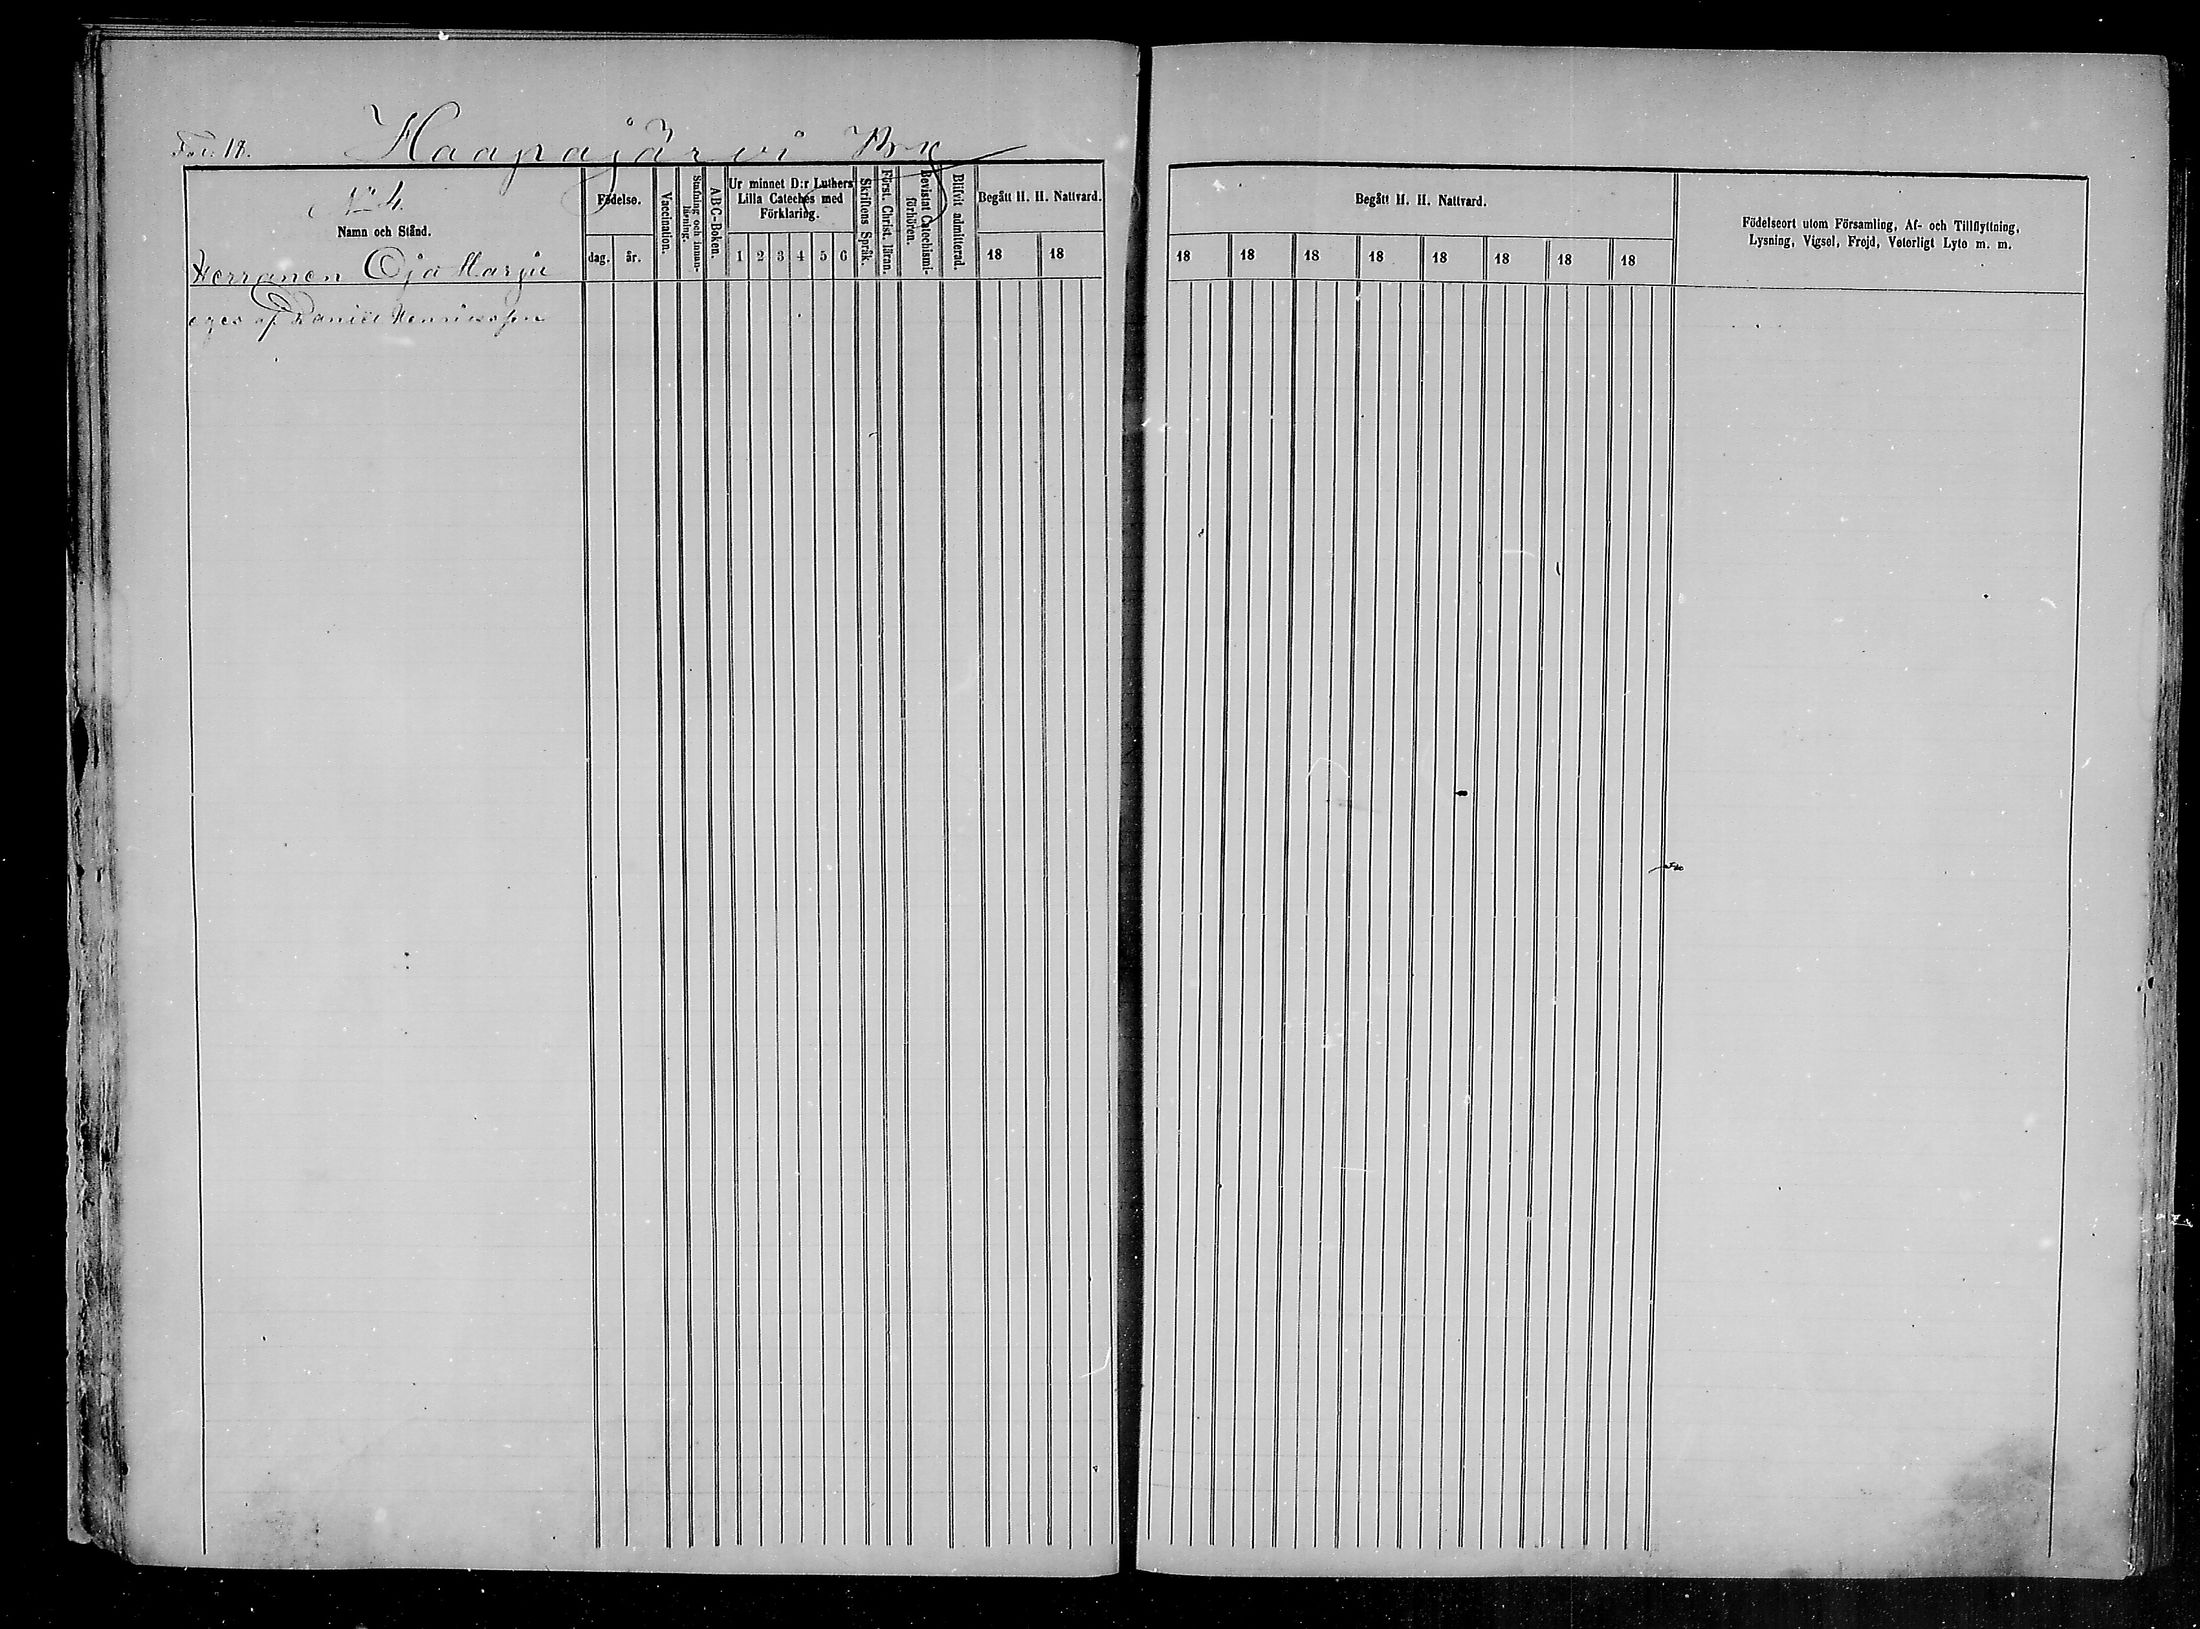 Fol: 18.
Haapajärvi By
No 4.
Namn och Stånd.
Herranen Oja Harju
eges af Daniel Henriksson
Födelse.
dag.
år.
Vaccination.
Stafning och innan-
läsning.
ABC-Boken.
Ur minnet D:r Luthers
Lilla Cateches med
Förklaring.
1 2 3 4 5 6
Skriftens Språk.
Först. Christ. läran.
Bevistat Catechismi-
förhören.
Blifvit admitterad.
Begått H. H. Nattvard.
18 18
Begått H. H. Nattvard.
18 18 18 18 18 18 18 18
Födelseort utom Församling, Af- och Tillflyttning,
Lysning, Vigsel, Frejd, Veterligt Lyte m. m.